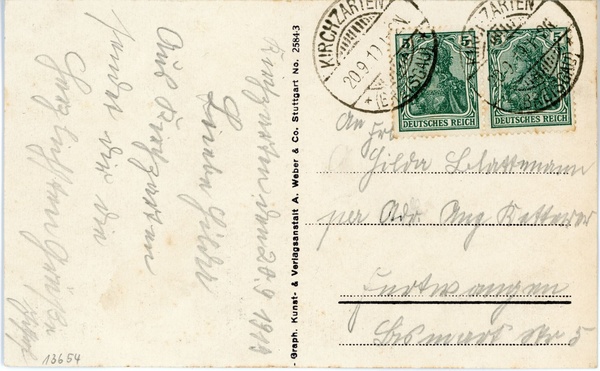 Kirchzarten, den 20.9.1919
Liebe Hilda
Aus Kirchzarten
sendet dir die
herzlichsten Grüße
13654
Graph. Kunst- & Verlagsanstalt A. Weber & Co. Stuttgart No. 2584-3
KIRCHZARTEN
20.9.19
DEUTSCHES REICH
5
DEUTSCHES REICH
5
KIRCHZARTEN
An Frl.
Hilda Blattmann
per Adr. Aug Ketterer
Furtwangen
Bismark Str 5